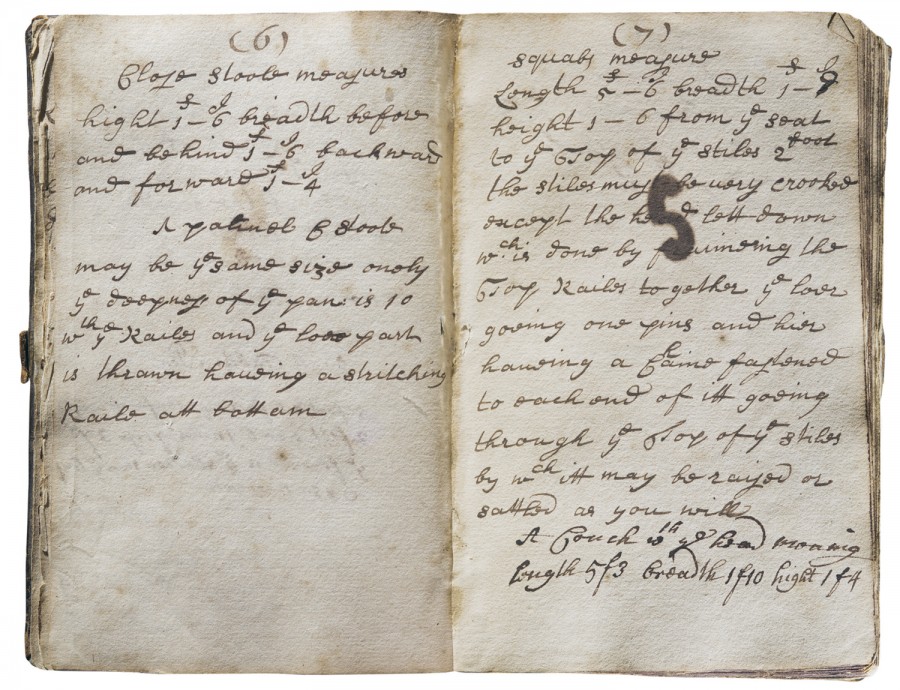 (6)
Close stoole measures
hight 1-6 breadth before
and behind 1-6 backward
and forward 1-4
A patinet Cstoole
may be yͤ same size onely
yͤ deepness of yͤ pan is 10
wᵗʰ yͤ Railes and yͤ loer part
is thrawn haueing a stritching
Raile att bottam
(7)
squabs measure
Length 5-6 breadth 1-9
height 1-6 from yͤ seat
to yͤ Top of yͤ stiles 2 foot
the stiles must be uery crooked
except the head lett down
wᶜʰ is done by the
Top Railes together yͤ loer
goeing one pins and hier
haueing a Chaine fastened
to each end of itt goeing
through yͤ Top of yͤ stiles
by wᶜʰ itt may be raised or
sattled as you will
A Couch wᵗʰ yͤ head moaing
Length 5f3 breadth 1f10 hight 1f4